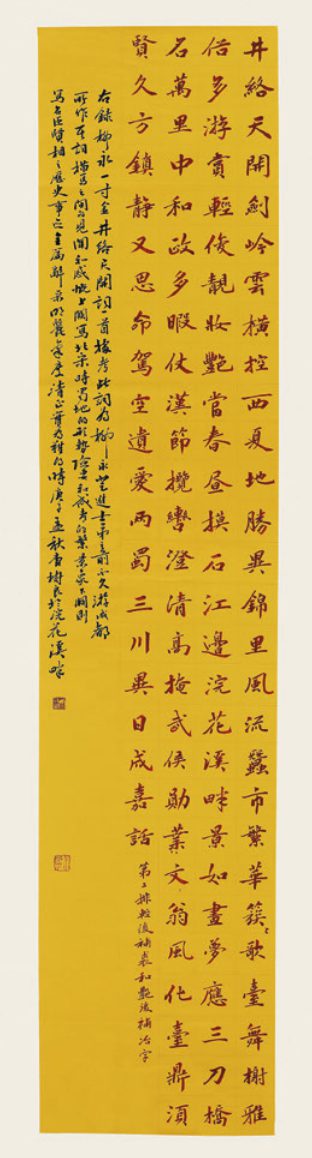 井絡天開劍岭雲橫控西夏地勝異錦里風流蠶市繁華簇〻歌臺舞榭雅
俗多游賞輕俊靚妝艷當春晝摸石江邊浣花溪畔景如畫夢應三刀橋
名萬里中和政多暇仗漢節攬轡澄清高掩武侯勛業文翁風化臺鼎須
賢久方鎮靜又思命駕空遺愛兩蜀三川異日成嘉話
第二排輕後補裘和艷後補冶字
右錄柳永一寸金井絡天開詞一首據考此詞為柳永登進士第前不久游成都
所作本詞描寫見聞和感慨上闋寫北宋時蜀地的形勢險要和成都的繁華景象下闋則
寫名臣賢相之歷史事全篇辭采明麗氣度清正時庚子孟秋於浣花溪畔